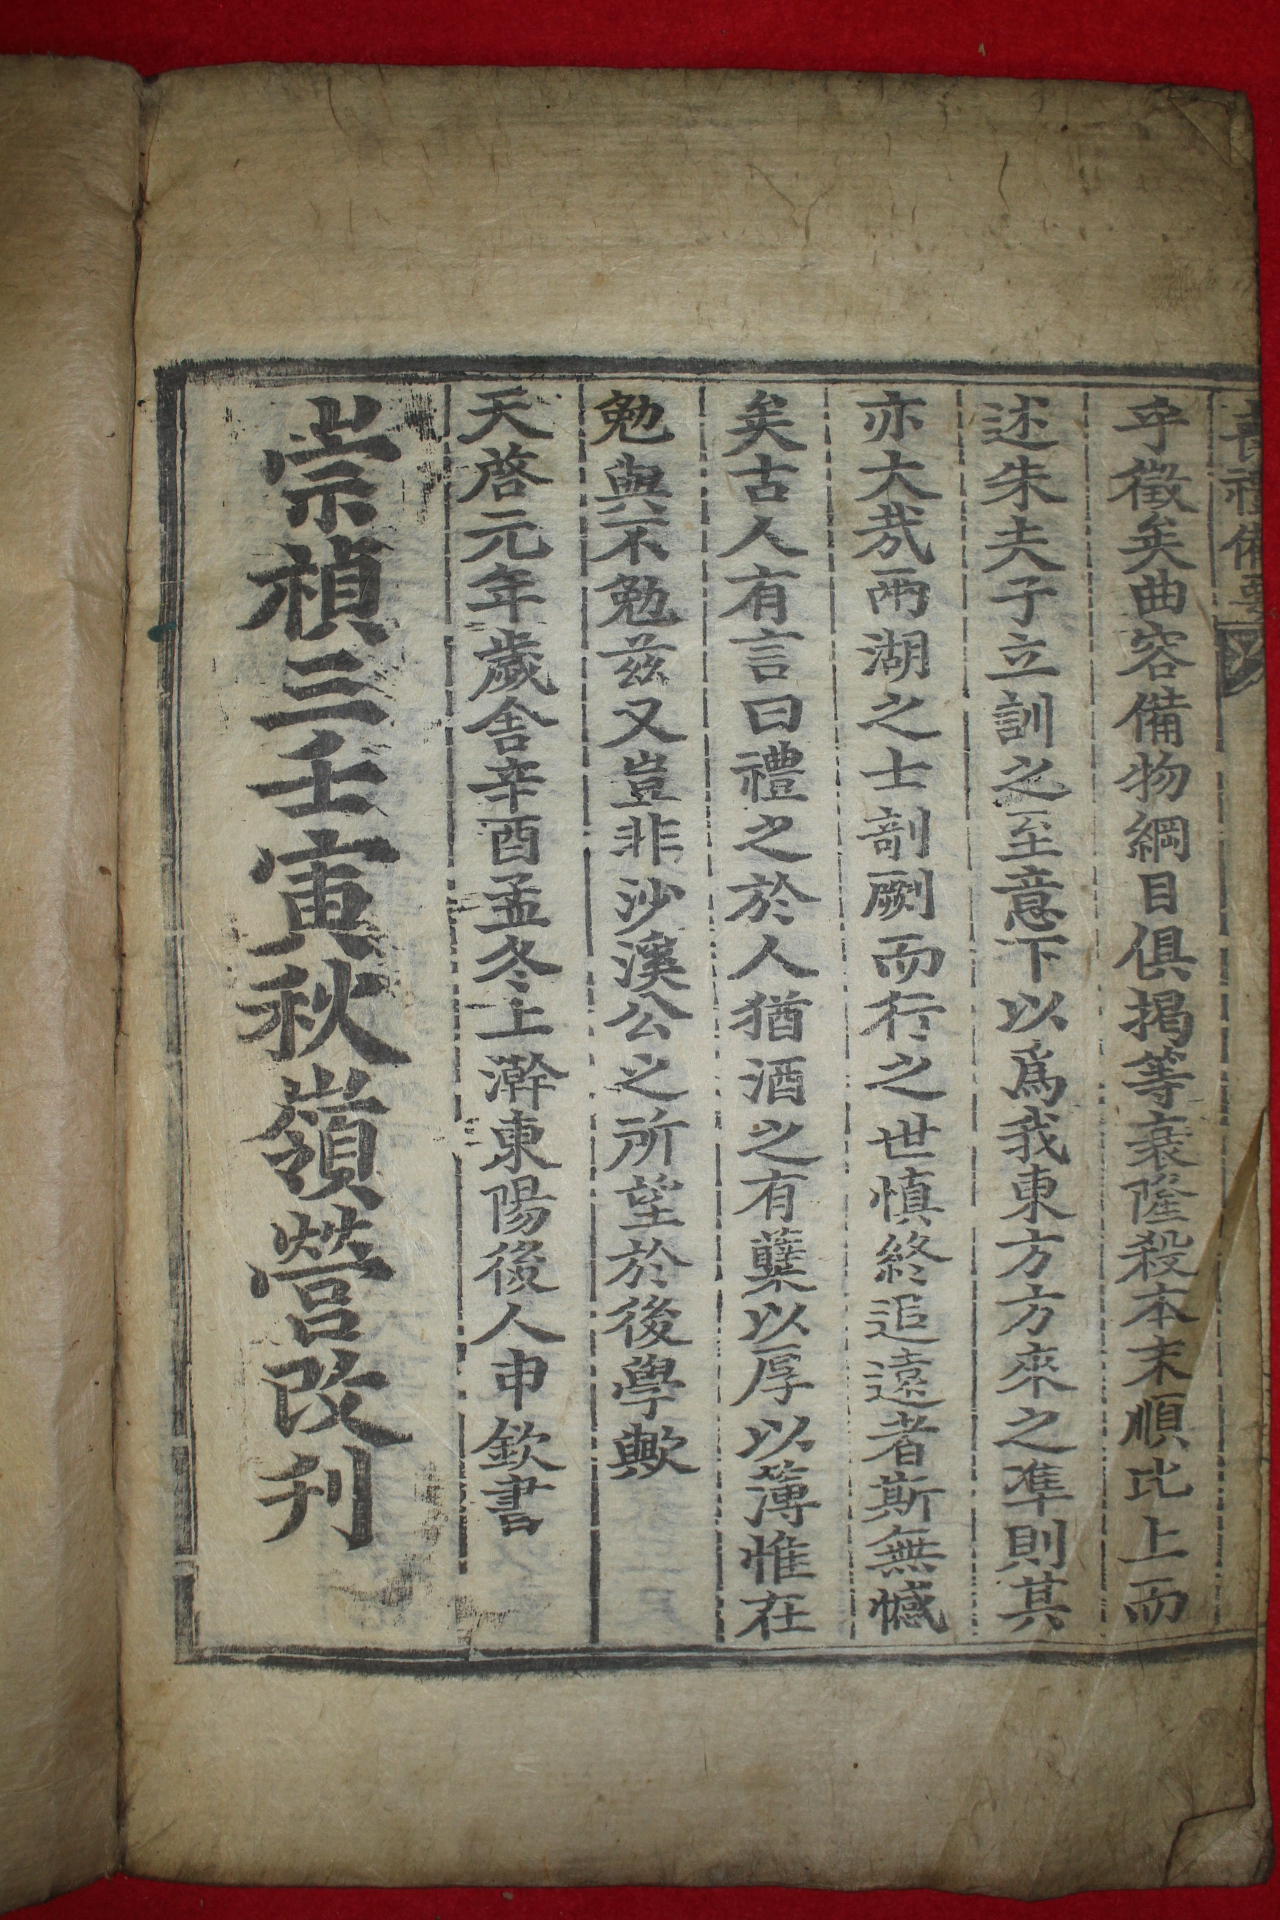 喪禮備要
乎徵矣曲容備物綱目俱揭等衰隆殺本末順比上而
述朱夫子立訓之至意下以爲我東方方來之準則其
亦大哉兩湖之士剖劂而行之世愼終追遠者斯無憾
矣古人有言曰禮之於人猶酒之有蘖以厚以薄惟在
勉與不勉玆又豈非沙溪公之所望於後學歟
天啓元年歲舍辛酉孟冬上澣東陽後人申欽書
崇禎三壬寅秋嶺營改刊